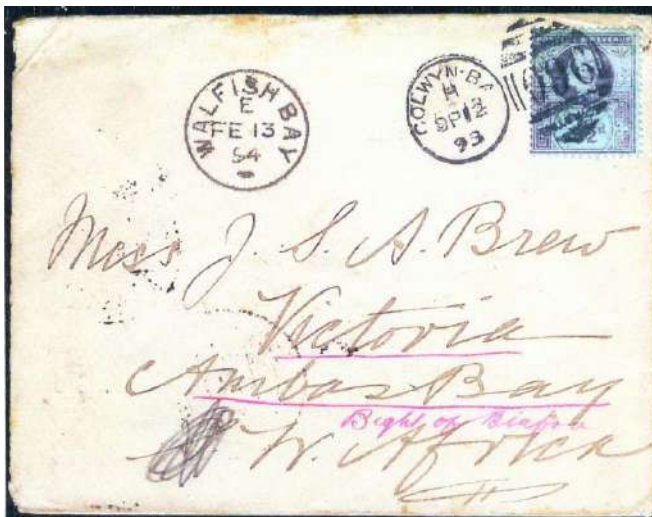 WALFISH BAY
E
FE 13
94
COLWYN-BA
H
SP 12
93
Miss J. S. A. Brew
Victoria
Ambas Bay
Bight of Biafra
W. Africa